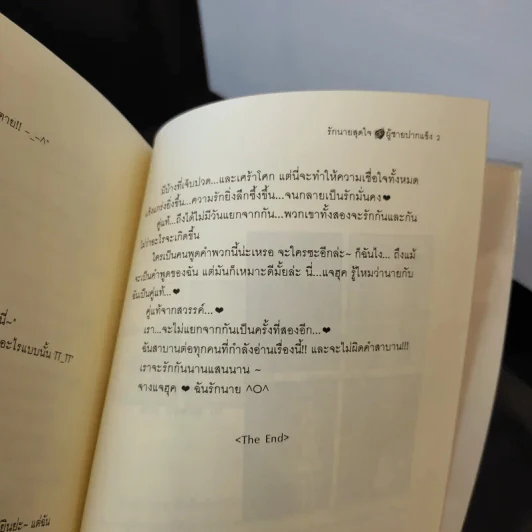 ตาย!! -_-^"
นี่~"
อะไรแบบนั้น TT_TT"
ยืนย่ะ~ แต่ฉัน
รักนายสุดใจ ผู้ชายปากแข็ง 2
มีบ้างที่เจ็บปวด...และเศร้าโศก แต่นี่จะทำให้ความเชื่อใจทั้งหมด
แข็งแกร่งยิ่งขึ้น...ความรักยิ่งลึกซึ้งขึ้น...จนกลายเป็นรักมั่นคง ❤
คู่แท้...ถึงได้ไม่มีวันแยกจากกัน...พวกเขาทั้งสองจะรักกันและกัน
ไม่ว่าอะไรจะเกิดขึ้น
ใครเป็นคนพูดคำพวกนี้น่ะเหรอ จะใครซะอีกล่ะ~ ก็ฉันไง... ถึงแม้
จะเป็นคำพูดของฉัน แต่มันก็เหมาะดีมั้ยล่ะ นี่...แจฮุค รู้ไหมว่านายกับ
ฉันเป็นคู่แท้... ❤
คู่แท้จากสวรรค์... ❤
เรา...จะไม่แยกจากกันเป็นครั้งที่สองอีก... ❤
ฉันสาบานต่อทุกคนที่กำลังอ่านเรื่องนี้!! และจะไม่ผิดคำสาบาน!!!
เราจะรักกันนานแสนนาน ~
จางแจฮุค ❤ ฉันรักนาย ^O^
<The End>